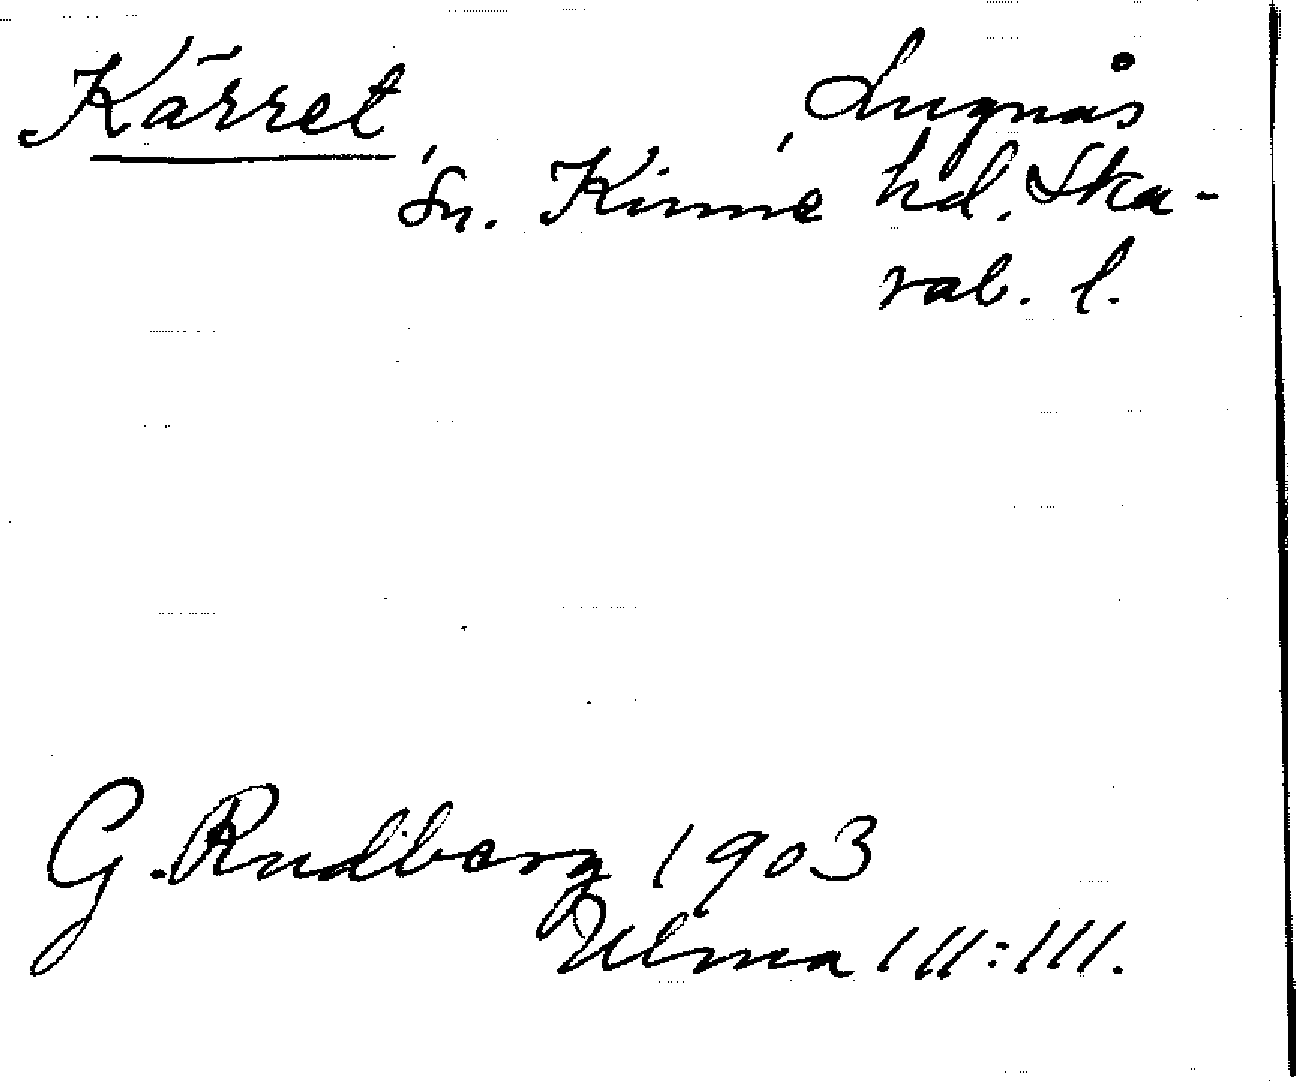 Kärret Lugnås
sn. Kinne hd. Ska-
rab. l.
G. Rudberg 1903
Ulma 111:111.